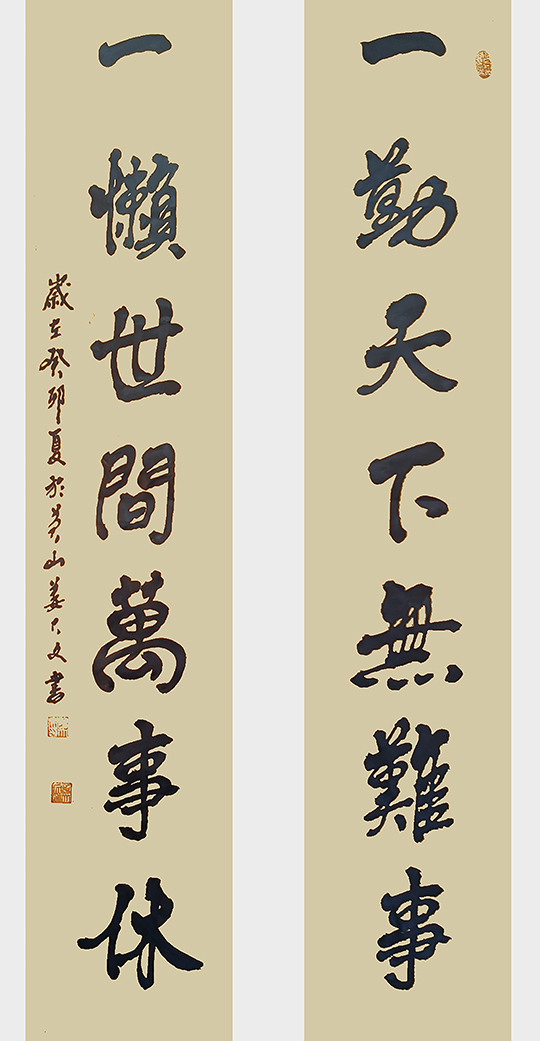 一勤天下無難事
一懶世間萬事休
歲在癸卯夏於黄山姜大文書